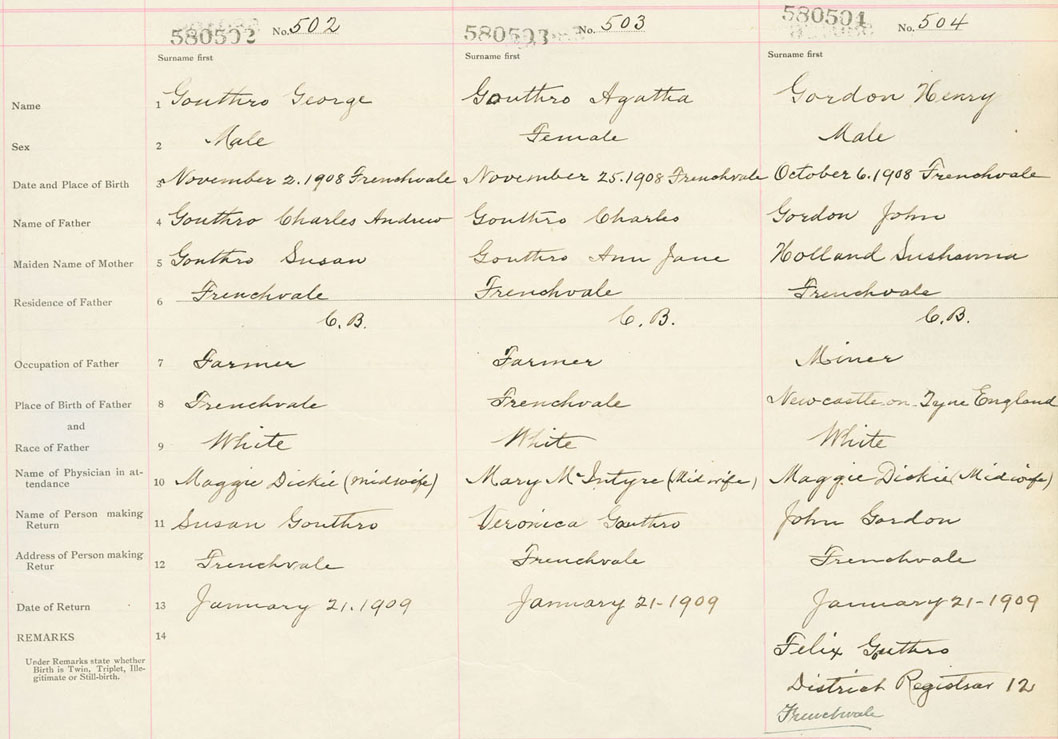 580502 No. 502 580503 No. 503 580504 No. 504
Surname first Surname first Surname first
Name 1 Gouthro George Gouthro Agatha Gordon Henry
Sex 2 Male Female Male
Date and Place of Birth 3 November 2. 1908 Frenchvale November 25. 1908 Frenchvale October 6. 1908 Frenchvale
Name of Father 4 Gouthro Charles Andrew Gouthro Charles Gordon John
Maiden Name of Mother 5 Gouthro Susan Gouthro Ann Jane Holland Sushanna
Residence of Father 6 Frenchvale Frenchvale Frenchvale
C.B. C.B. C.B.
Occupation of Father 7 Farmer Farmer Miner
Place of Birth of Father 8 Frenchvale Frenchvale Newcastle on Tyne England
and
Race of Father 9 White White White
Name of Physician in at-
tendance 10 Maggie Dickie (midwife) Mary McIntyre (Midwife) Maggie Dickie (Midwife)
Name of Person making
Return 11 Susan Gouthro Veronica Gouthro John Gordon
Address of Person making
Retur 12 Frenchvale Frenchvale Frenchvale
Date of Return 13 January 21. 1909 January 21-1909 January 21-1909
REMARKS 14
Under Remarks state whether
Birth is Twin, Triplet, Ille-
gitimate or Still-birth.
Felix Gouthro
District Registrar 12
Frenchvale